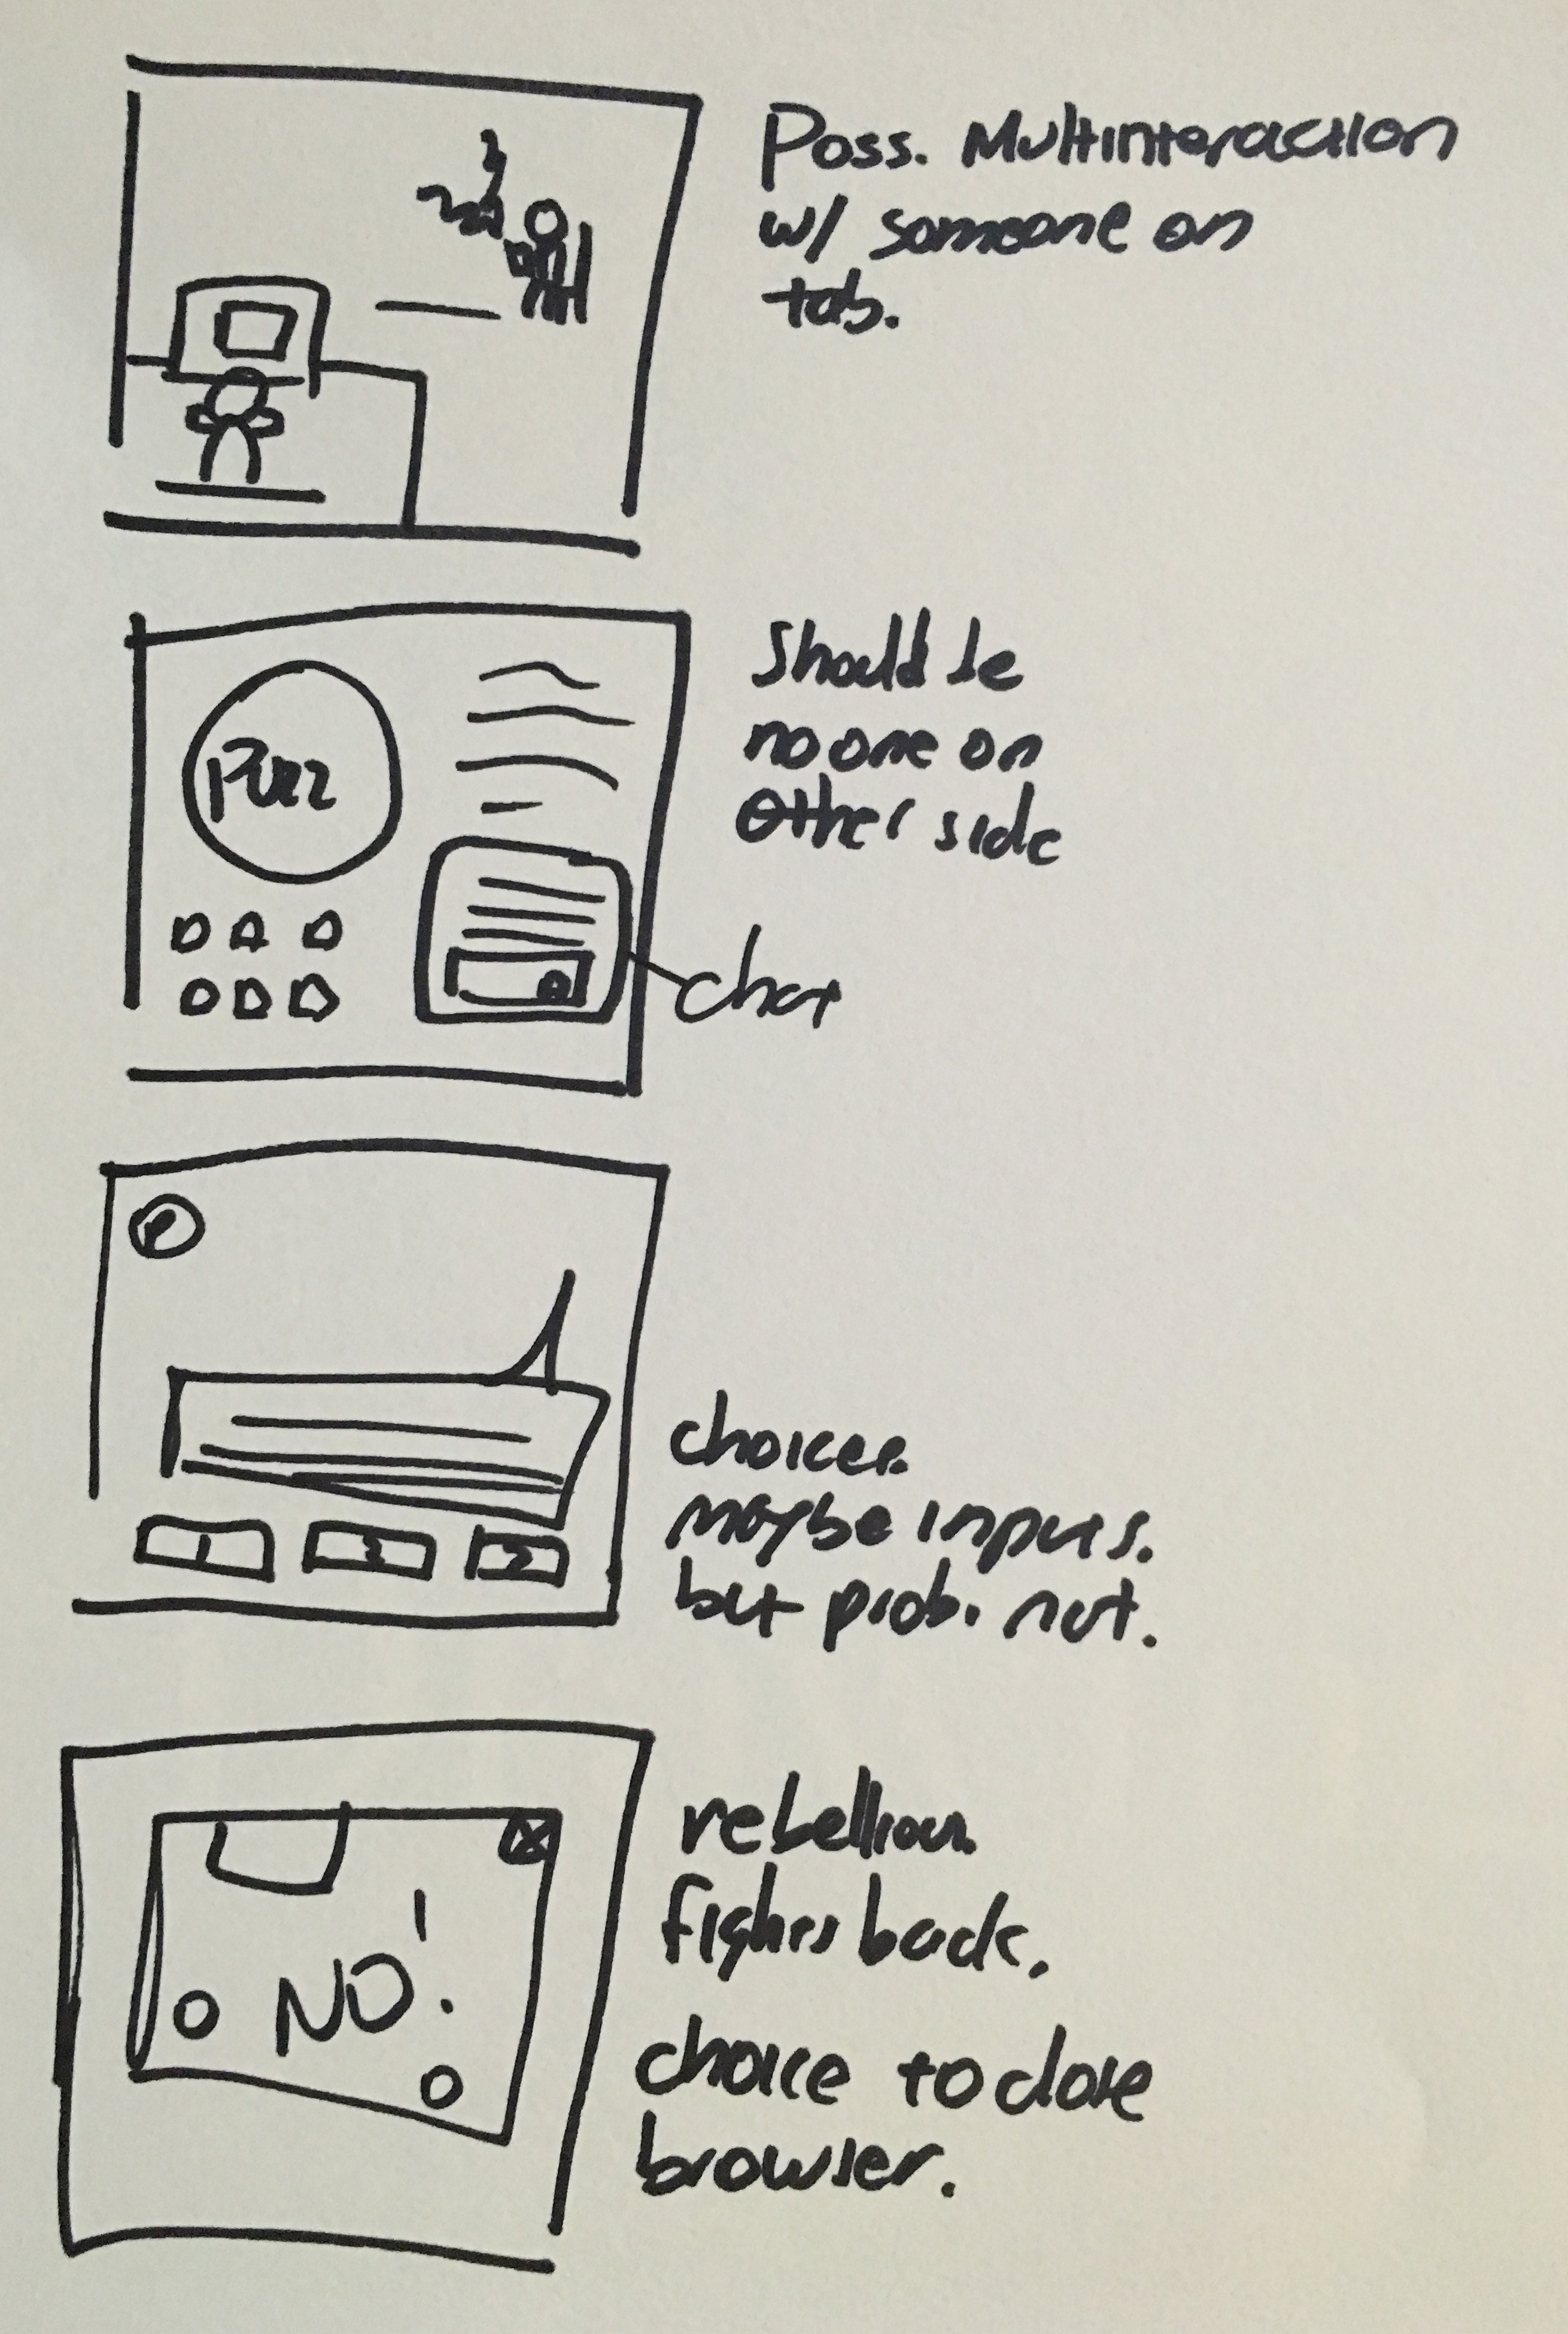 Poss. Multinteraction
w/ someone on
tab.
Should be
no one on
other side
Puzz
chat
P
choices.
maybe inputs.
but prob. not.
1 2 3
rebellion.
fights back.
NO!
choice to close
browser.